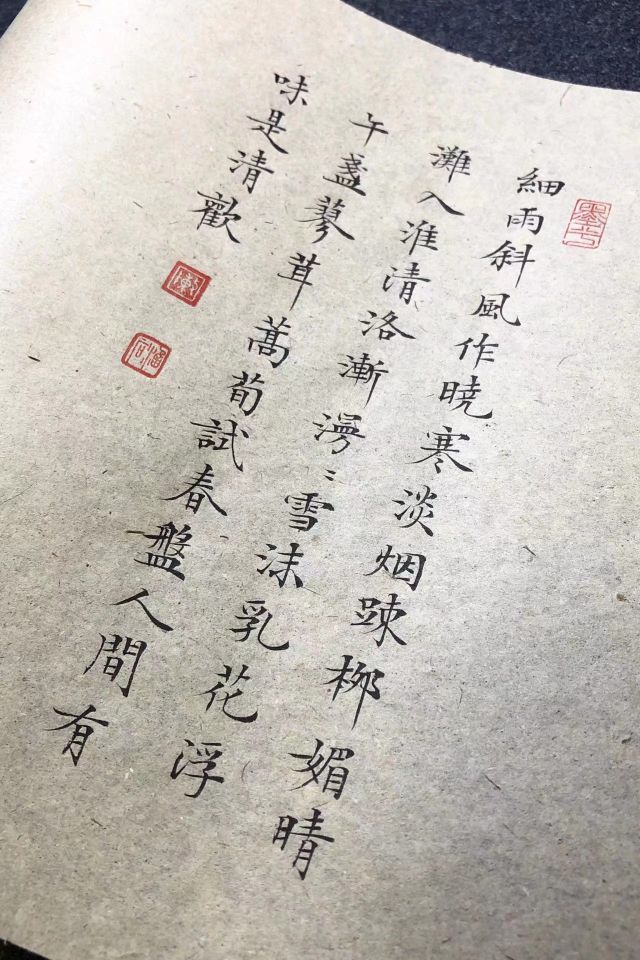 細雨斜風作暁寒淡烟踈栁媚晴
灘入淮清洛漸漫〻雪沫乳花浮
午盞蓼茸蒿筍試春盤人間有
味是清歡